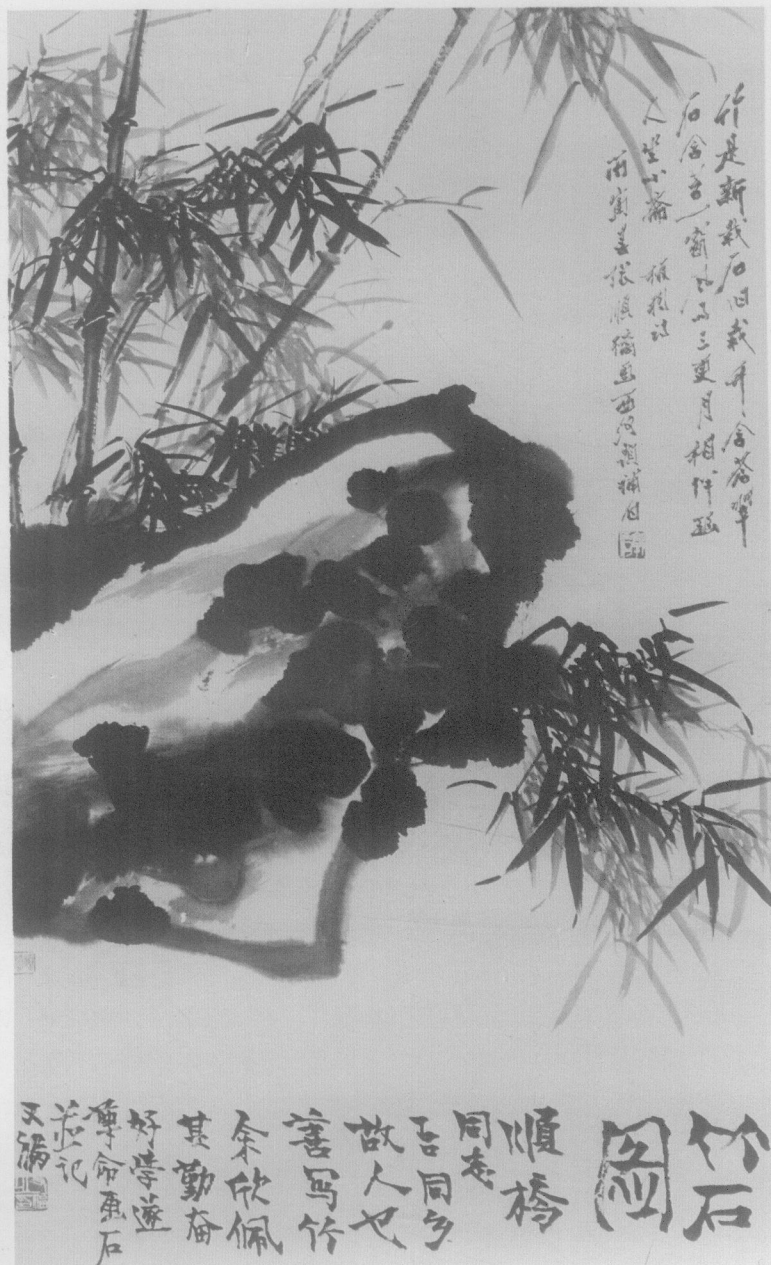 竹是新栽石旧栽竹含苍翠
石含苔一窗风雨三更月相伴幽
人坐小斋 板桥诗
丙寅姜依顺桥画
竹石
图
顺橋
同志
吾同乡
故人也
善写竹
余欣佩
其勤奋
好学遂
命画石
并记
又满